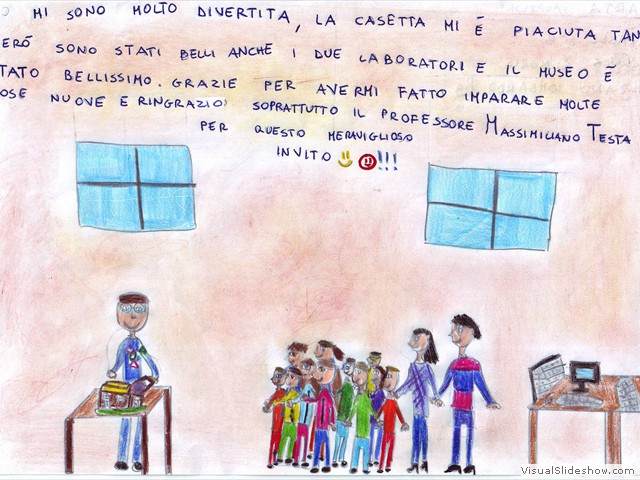 MI SONO MOLTO DIVERTITA, LA CASETTA MI È PIACIUTA
SONO STATI BELLI ANCHE I DUE LABORATORI E IL MUSEO È
BELLISSIMO. GRAZIE PER AVERMI FATTO IMPARARE MOLTE
NUOVE E RINGRAZIO SOPRATTUTTO IL PROFESSORE MASSIMILIANO TESTA
PER QUESTO MERAVIGLIOSO
INVITO !!!
VisualSlideshow.com